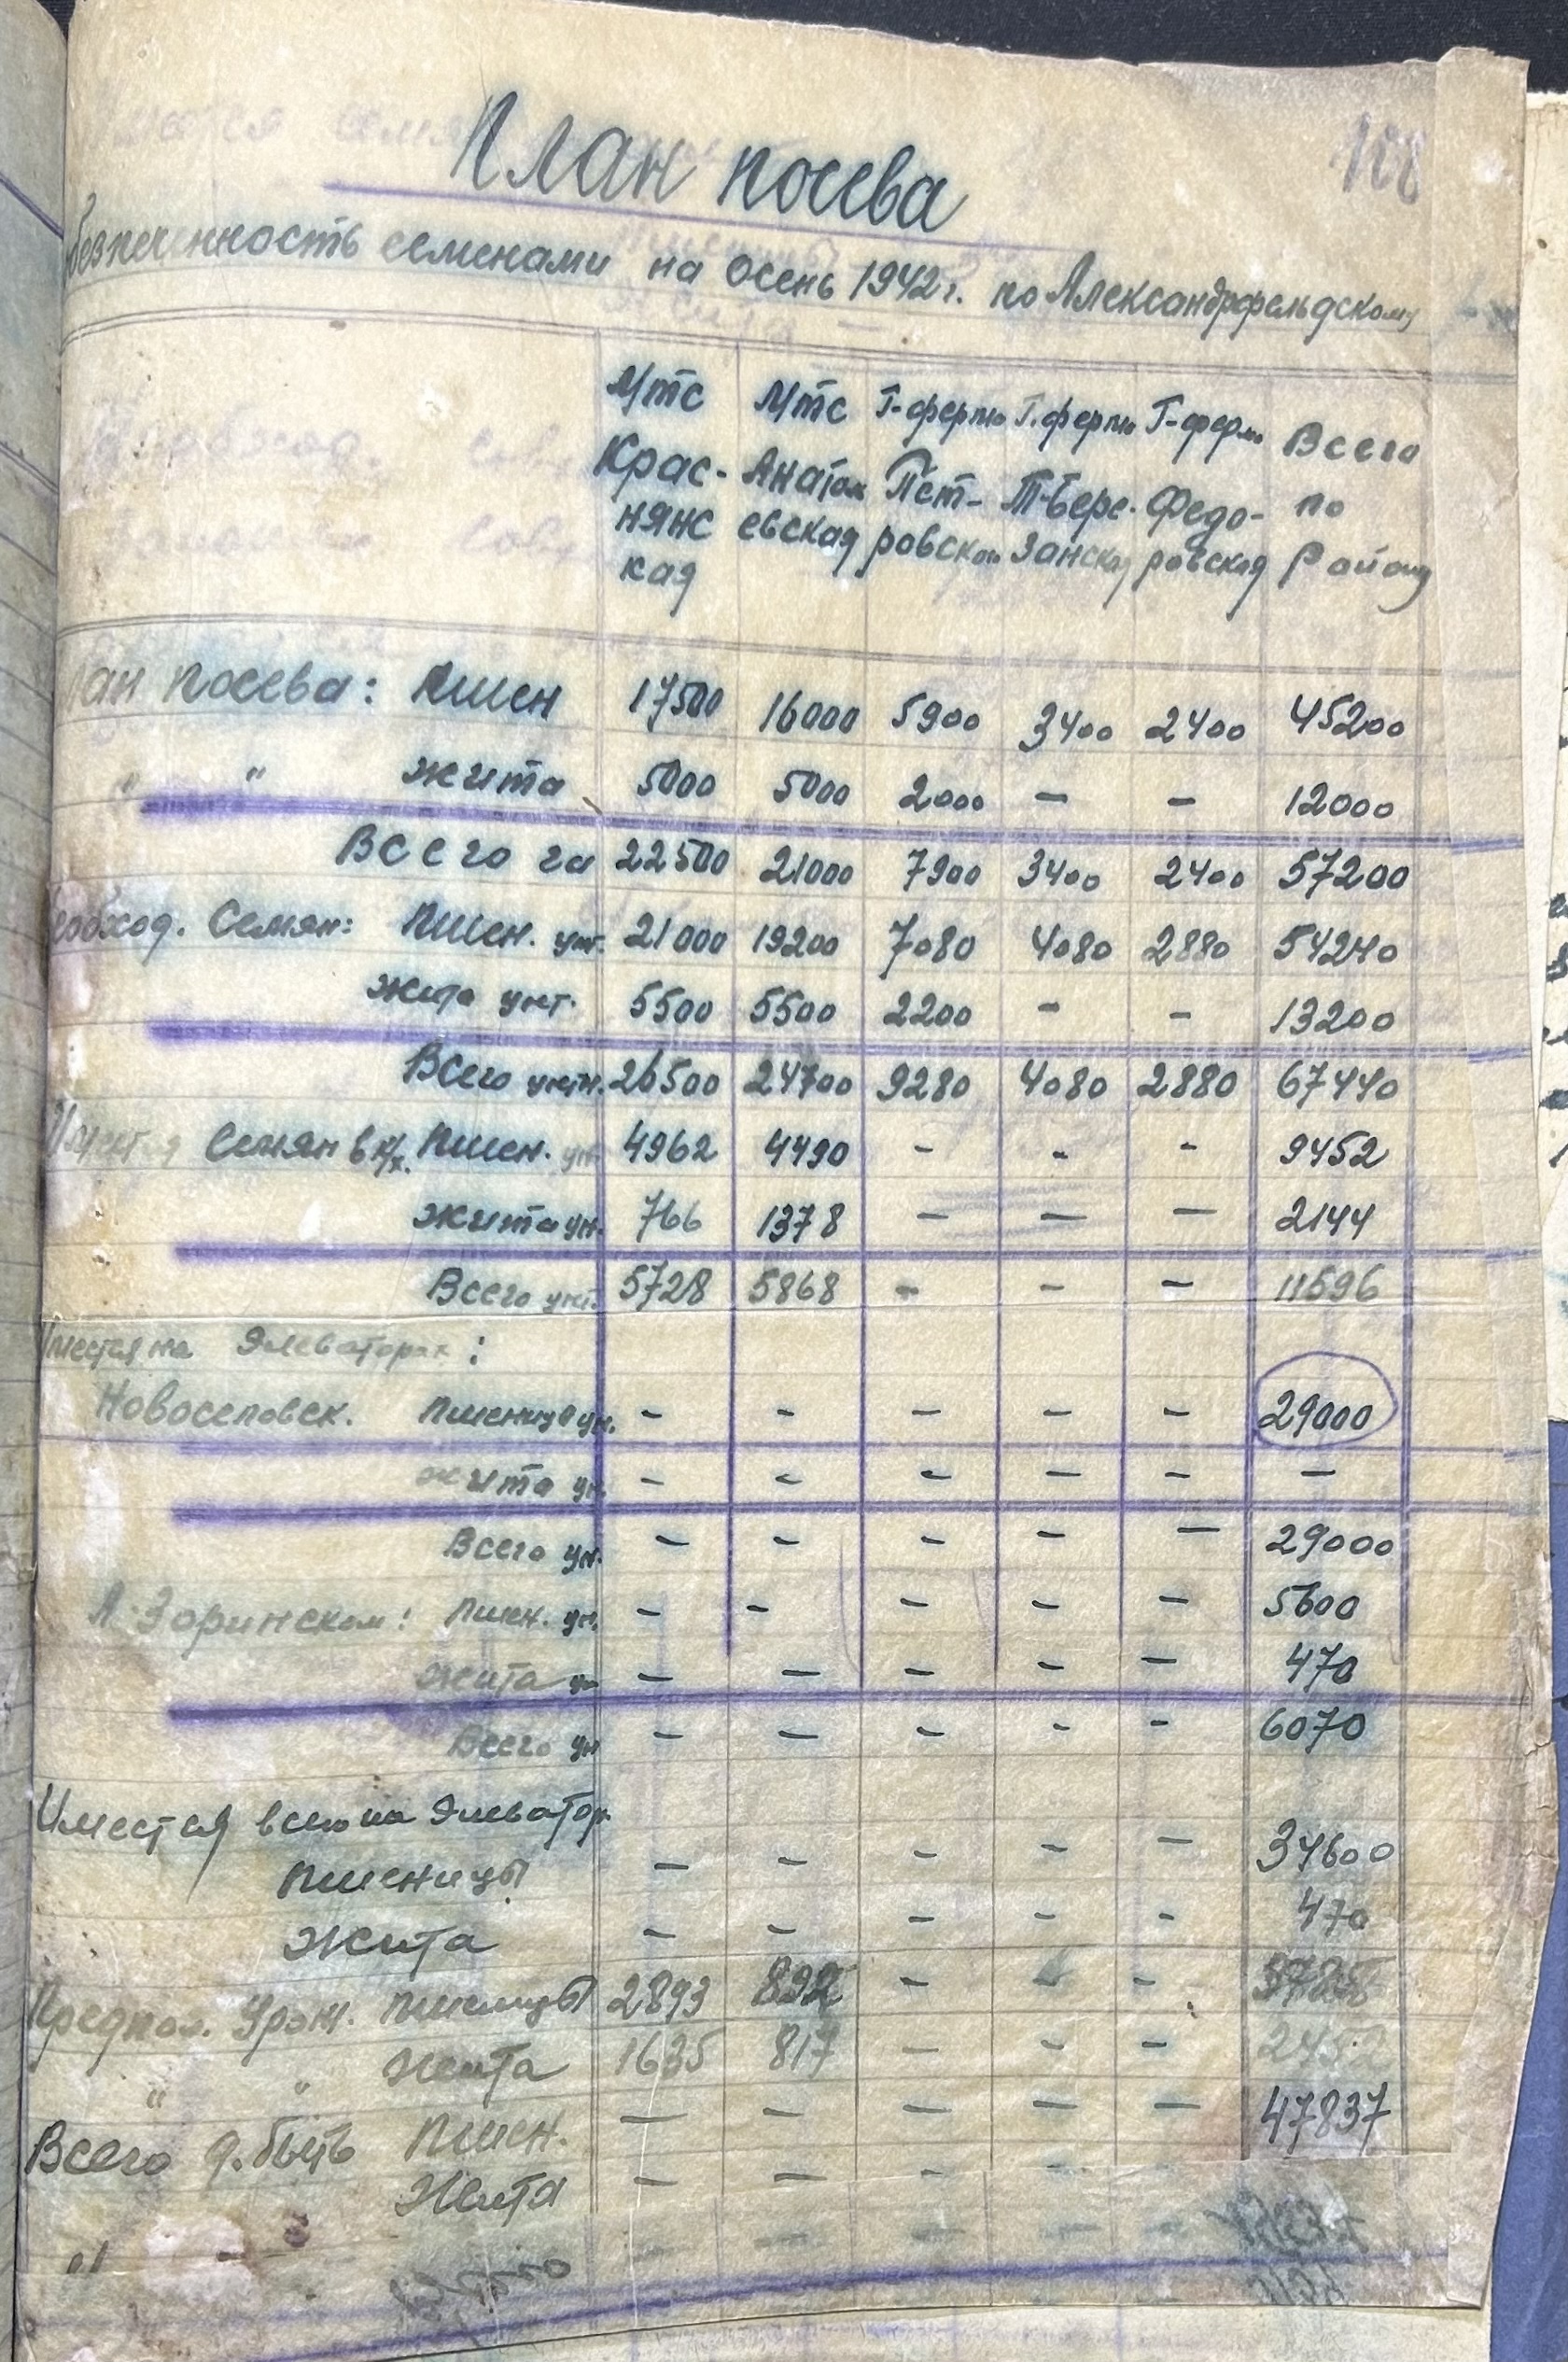 План посева
обезпеченность семенами на Осень 1942 г. по Александрфельдскому
МТС Крас-нянс кая | МТС Анатол евская | Г-ферма Пет-ровской | Г.ферма Т-Бере-занская | Г-ферма Федо-ровская | Всего по Району
План посева: Пшен 17500 16000 5900 3400 2400 45200
" " Жита 5000 5000 2000 – – 12000
Всего га 22500 21000 7900 3400 2400 57200
Необход. Семян: Пшен. цнт. 21000 19200 7080 4080 2880 54240
Жита цнт. 5500 5500 2200 - - 13200
Всего цнтн. 26500 24700 9280 4080 2880 67440
Имеется Семян в к/х. Пшен. цн. 4962 4490 - - - 9452
Жита цн. 766 1378 – – – 2144
Всего цнт. 5728 5868 - - – 11596
Имеется на Элеваторах:
Новоселовск. Пшеница цн. - - - - - 29000
Жита цн. - - - - - –
Всего цн. - - - - – 29000
А. Зоринском: Пшен. цн. - - - - - 5600
Жита цн – – - - – 470
Всего цн - – - - - 6070
Имеется всего на Элеватор.
Пшеницы – - - - – 34600
Жита - - - - - 470
Предпол. Урож. Пшеницы 2893 892 - - 3785
" " Жита 1635 817 - - - 2452
Всего д. быть Пшен. – - - – – 47837
Жита - – -
"